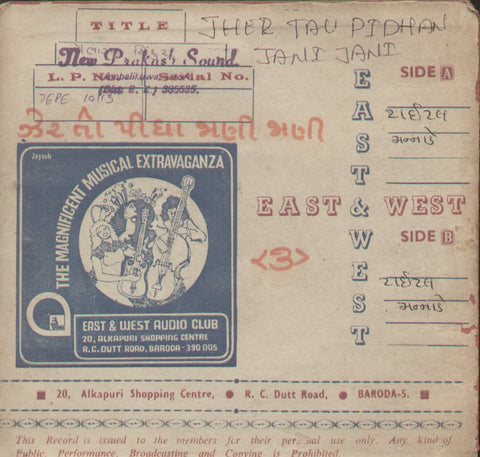 TITLE
JHER TAU PIDHAN
JANI JANI
New Prakash Sound
L. P. No. Serial No.
(Dist. B. K.) 385535.
7EPE 1013
ઝેર તો પીધાં જાણી જાણી
SIDE A
ટાઈટલ
મન્નાડે
EAST & WEST
EAST & WEST
SIDE B
ટાઈટલ
મન્નાડે
<૩>
Jayesh
THE MAGNIFICENT MUSICAL EXTRAVAGANZA
EAST & WEST AUDIO CLUB
20, ALKAPURI SHOPPING CENTRE
R. C. DUTT ROAD, BARODA-390 005
20, Alkapuri Shopping Centre, ● R. C. Dutt Road, ● BARODA-5.
This Record is issued to the members for their personal use only. Any kind of
Public, Performance, Broadcasting and Copying is Prohibited.